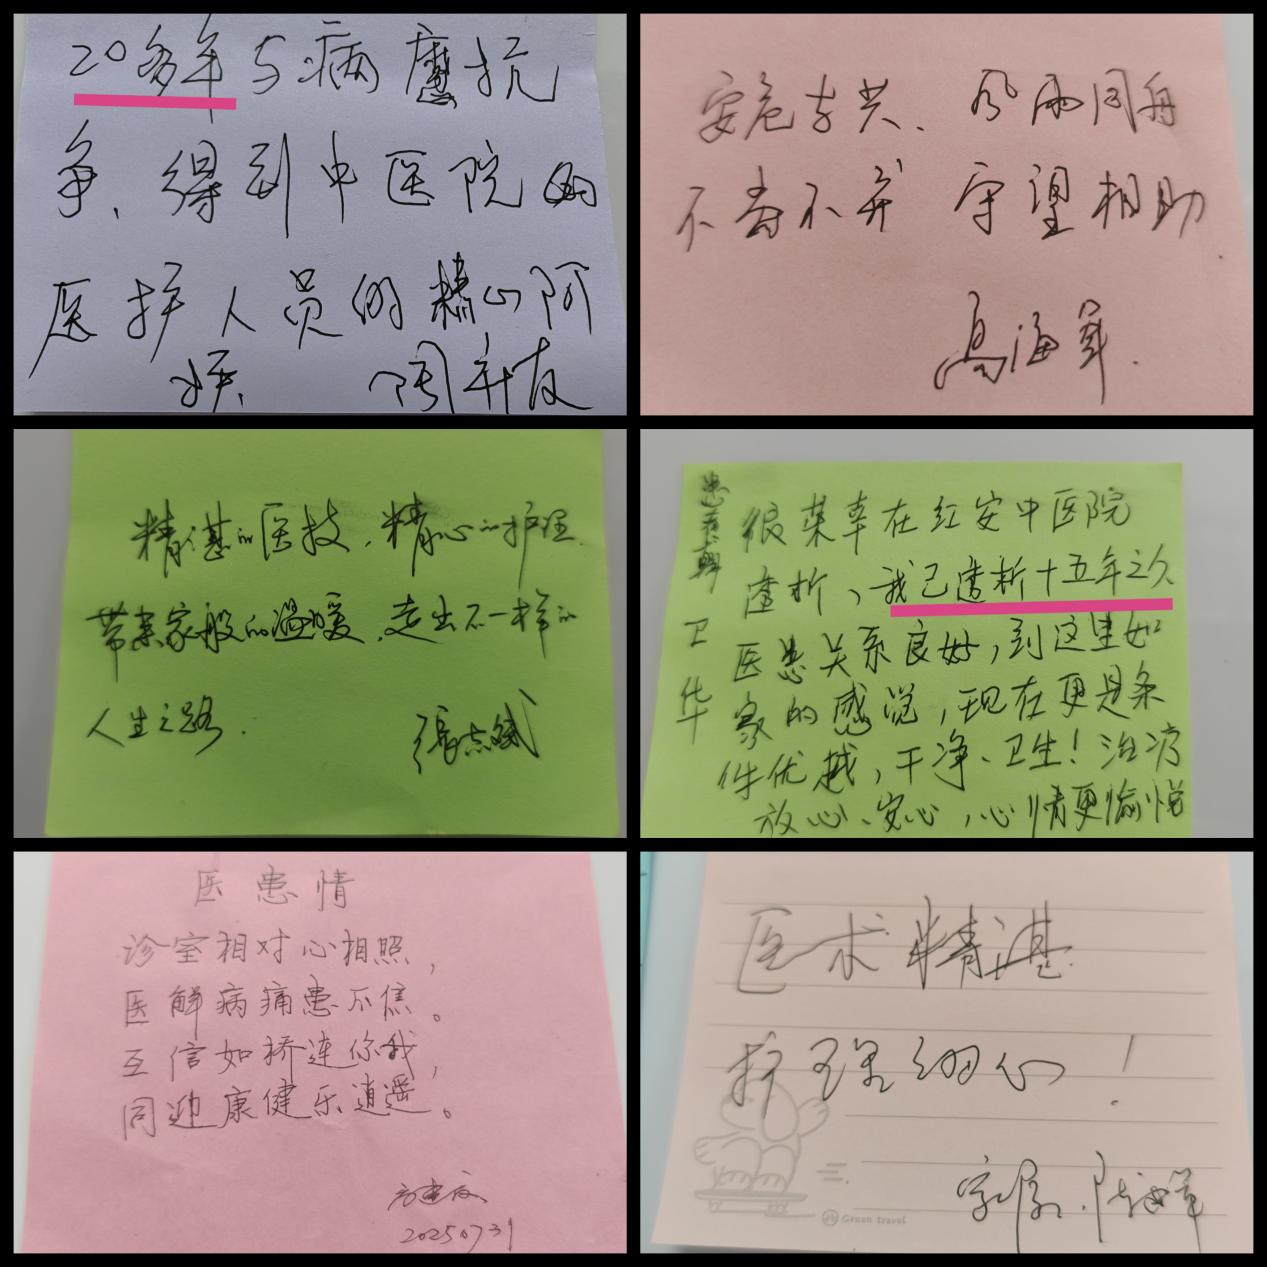 20多年与病魔抗
争、得到中医院的
医护人员的精心呵
护、 周并友
安危与共、风雨同舟
不离不弃 守望相助
高海军.
精湛的医技,精心的护理
带来家般的温暖,走出不一样的
人生之路.
張志斌
很荣幸在红安中医院
透析、我已透析十五年之久
医患关系良好,到这里如
家的感觉,现在更是条
件优越,干净、卫生!治疗
放心、安心,心情更愉悦
卫华
医患情
诊室相对心相照,
医解病痛患不焦。
互信如桥连你我,
同迎康健乐逍遥。
20250731
医术精湛
护理细心!
家属:
Green travel